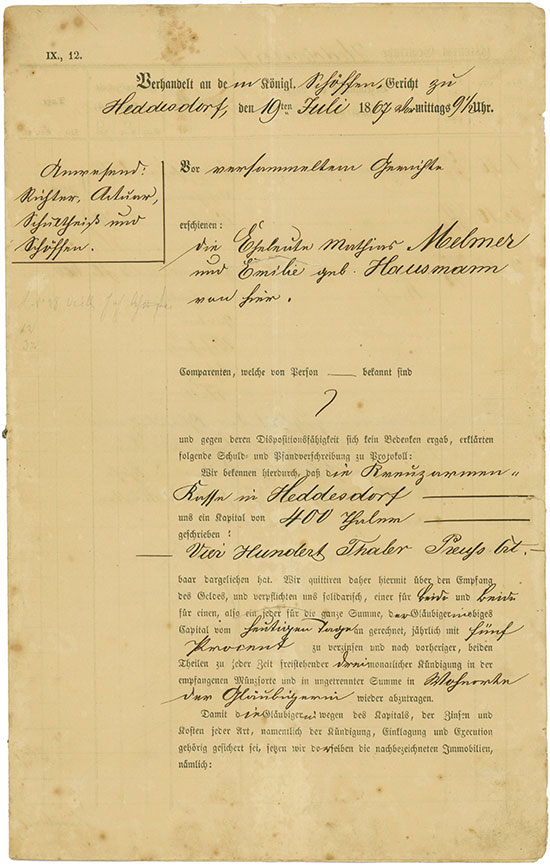 IX., 12.
Verhandelt an dem Königl. Schöffen Gericht zu
Heddesdorf, den 19ten Juli 1867 Vormittags 9½ Uhr.
Anwesend:
Richter, Actuar,
Schultheiß und
Schöffen.
Vor versammeltem Gerichte
erschienen:
die Eheleute Mathias Melmer
und Emilie geb. Hausmann
von hier.
Comparenten, welche von Person — bekannt sind
und gegen deren Dispositionsfähigkeit sich kein Bedenken ergab, erklärten
folgende Schuld- und Pfandverschreibung zu Protokoll:
Wir bekennen hierdurch, daß die Kreuzarmen-
Kasse in Heddesdorf
uns ein Kapital von 400 Thalern
geschrieben:
Vier Hundert Thaler Preuß Crt.
baar dargeliehen hat. Wir quittiren daher hiermit über den Empfang
des Geldes, und verpflichten uns solidarisch, einer für beide und beide
für einen, also ein jeder für die ganze Summe, der Gläubigerin obiges
Capital vom heutigen Tage an gerechnet, jährlich mit fünf
Procent zu verzinsen und nach vorheriger, beiden
Theilen zu jeder Zeit freistehender dreimonatlicher Kündigung in der
empfangenen Münzsorte und in ungetrennter Summe in Wohnorte
der Gläubigerin wieder abzutragen.
Damit die Gläubigerin wegen des Kapitals, der Zinsen und
Kosten jeder Art, namentlich der Kündigung, Einklagung und Execution
gehörig gesichert sei, setzen wir derselben die nachbezeichneten Immobilien,
nämlich: